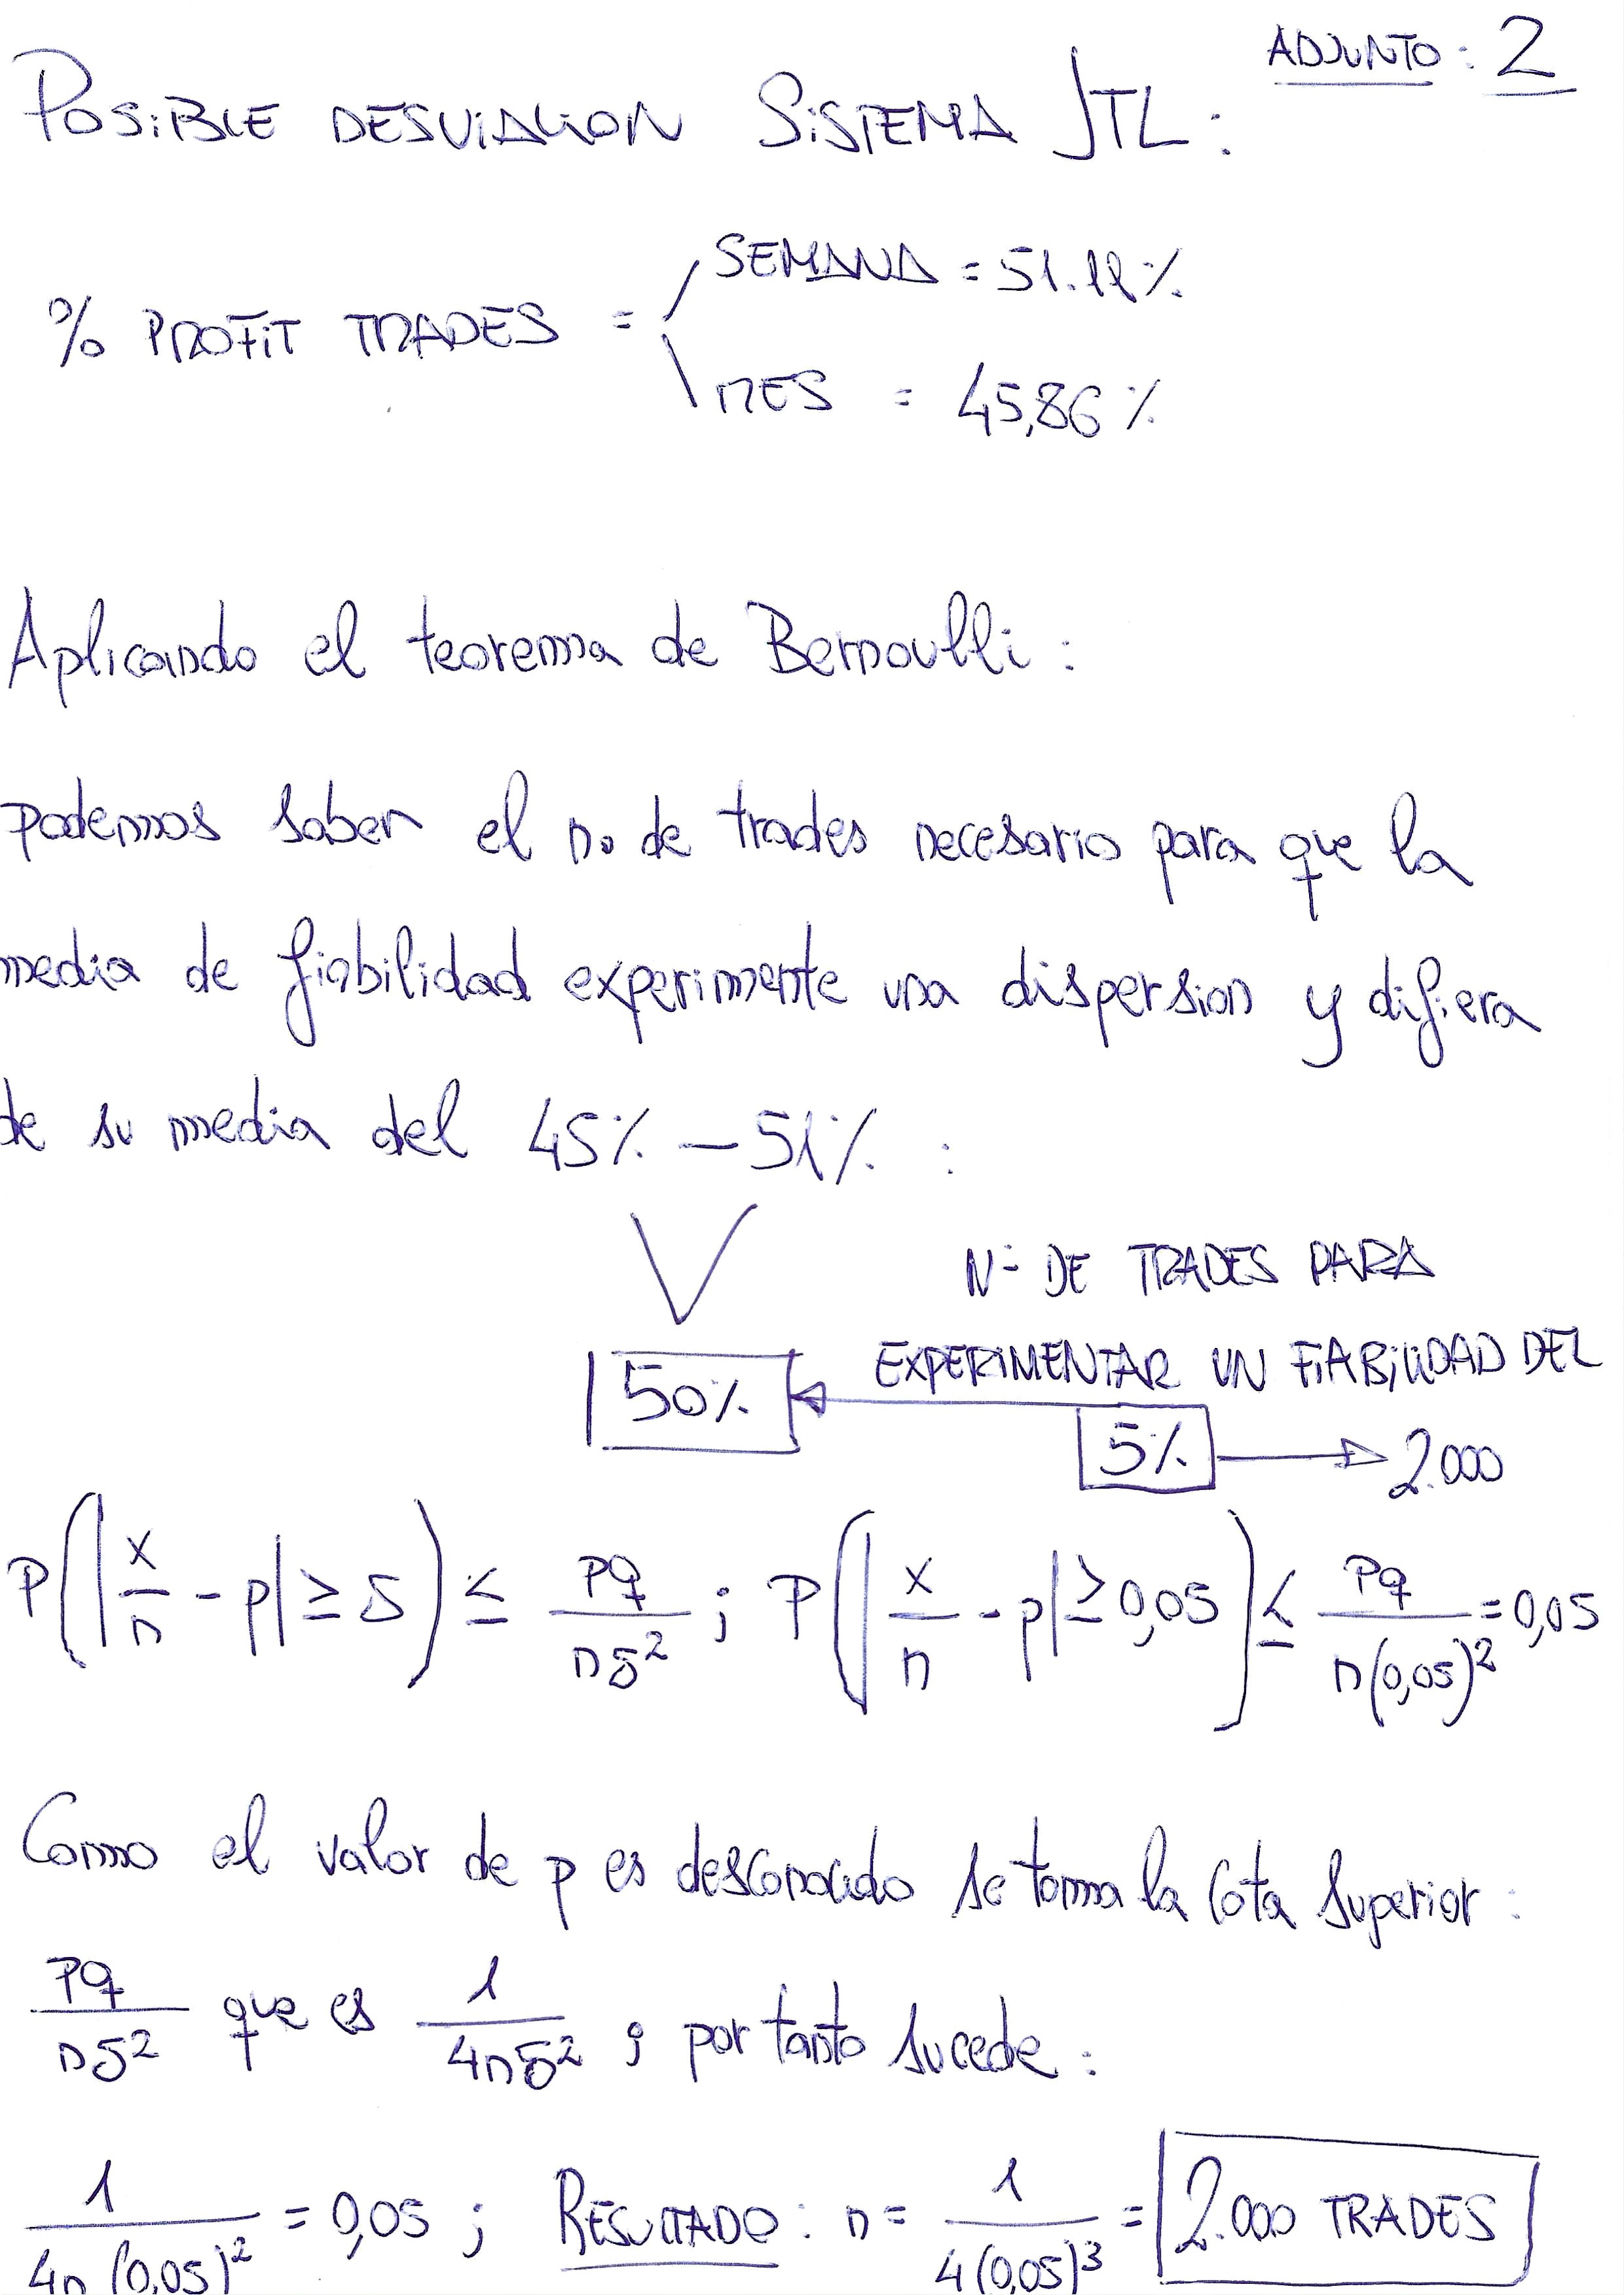 ADJUNTO: 2
POSIBLE DESVIACION SISTEMA JTL:
% PROFIT TRADES = SEMANA = 51.12%
MES = 45,86%
Aplicando el teorema de Bernoulli:
podemos saber el no de trades necesario para que la
media de fiabilidad experimente una dispersion y difiera
de su media del 45% - 51% :
Nº DE TRADES PARA
50% EXPERIMENTAR UN FIABILIDAD DEL
5% → 2.000
P(|x/n - p| ≥ δ) ≤ pq/nδ² ; P(|x/n - p| ≥ 0,05) ≤ pq/n(0,05)² = 0,05
Como el valor de p es desconocido se toma la cota superior:
pq/nδ² que es 1/4nδ² ; por tanto sucede:
1/4n(0,05)² = 0,05 ; RESULTADO: n = 1/4(0,05)³ = 2.000 TRADES